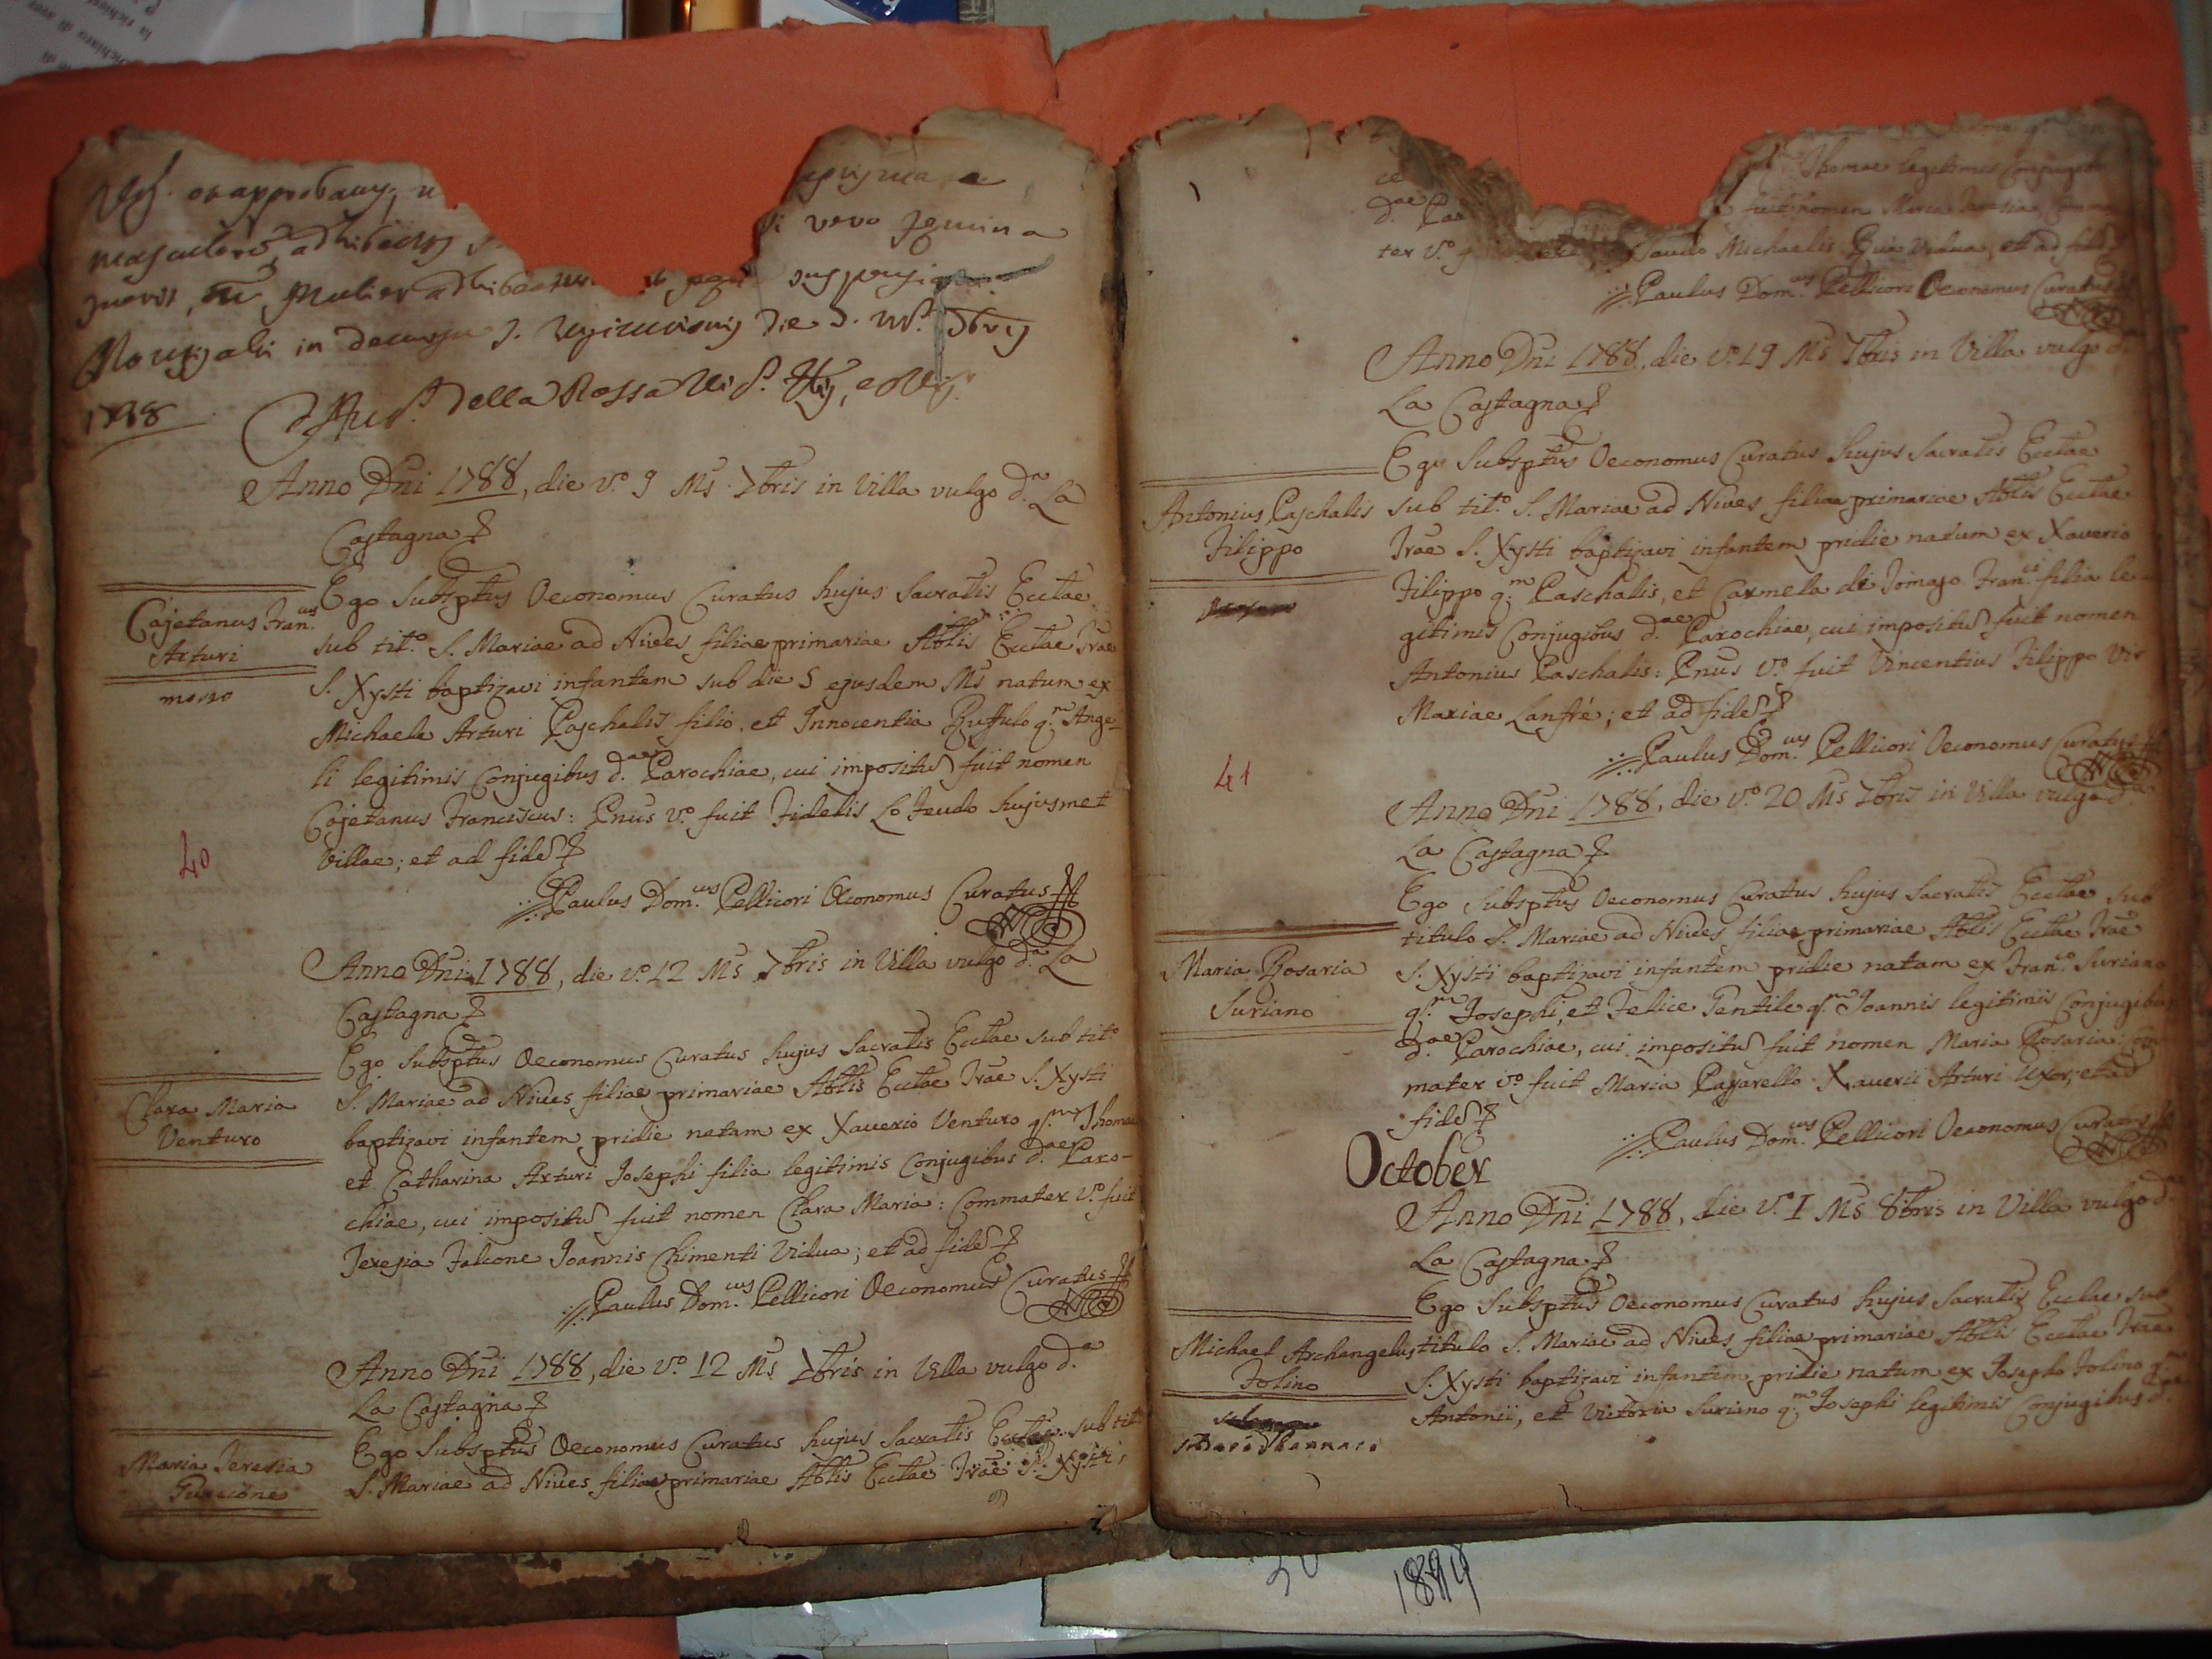 masculoru, adhibeatur
si vero femina
fuerit, Mulier adhibeatur
in
1788
Della Rossa
Anno Dni 1788, die v.° 9 Ms 7bris in Villa vulgo d.ª La
Castagna
Cajetanus Fran.cus
Arturi
morto
Ego Subsptus Oeconomus Curatus hujus Sacratis Ecclae
sub tit.° S. Mariae ad Nives filiae primariae Abtis Ecclae Trae
S. Xysti baptizavi infantem sub die 5 ejusdem Ms natum ex
Michaele Arturi Paschalis filio, et Innocentia Ruffulo q.m Ange-
li legitimis Conjugibus d.ae Parochiae, cui impositu fuit nomen
Cajetanus Franciscus: Pnus v.° fuit Fidelis Lo Feudo hujusmet
Villae; et ad fide
40
Paulus Dom.cus Pellicori Oeconomus Curatus
Anno Dni 1788, die v.° 12 Ms 7bris in Villa vulgo d.ª La
Castagna
Clara Maria
Venturo
Ego Subsptus Oeconomus Curatus hujus Sacratis Ecclae sub tit.°
S. Mariae ad Nives filiae primariae Abtis Ecclae Trae S. Xysti
baptizavi infantem pridie natam ex Xaverio Venturo q.m Thomae
et Catharina Arturi Josephi filia legitimis Conjugibus d.ae Paro-
chiae, cui impositu fuit nomen Clara Maria: Commater v.° fuit
Teresia Falcone Joannis Chimenti Vidua; et ad fide
Paulus Dom.cus Pellicori Oeconomus Curatus
Anno Dni 1788, die v.° 12 Ms 7bris in Villa vulgo d.ª
La Castagna
Maria Teresia
Ego Subsptus Oeconomus Curatus hujus Sacratis Ecclae sub tit.°
S. Mariae ad Nives filiae primariae Abtis Ecclae Trae S. Xysti
Thomae legitimis Conjugibus
d.ae Par fuit nomen Maria
ter v.° Michaelis Vidua, et ad fide
Paulus Dom.cus Pellicori Oeconomus Curatus
Anno Dni 1788, die v.° 19 Ms 7bris in Villa vulgo d.ª
La Castagna
Antonius Paschalis
Filippo
Ego Subsptus Oeconomus Curatus hujus Sacratis Ecclae
sub tit.° S. Mariae ad Nives filiae primariae Abtis Ecclae
Trae S. Xysti baptizavi infantem pridie natum ex Xaverio
Filippo q.m Paschalis, et Carmela de Tomaso Fran.ci filia le-
gitimis Conjugibus d.ae Parochiae, cui impositu fuit nomen
Antonius Paschalis: Pnus v.° fuit Vincentius Filippo Vir
Mariae Lanfré; et ad fide
Paulus Dom.cus Pellicori Oeconomus Curatus
41
Anno Dni 1788, die v.° 20 Ms 7bris in Villa vulgo d.ª
La Castagna
Maria Rosaria
Suriano
Ego Subsptus Oeconomus Curatus hujus Sacratis Ecclae sub
titulo S. Mariae ad Nives filiae primariae Abtis Ecclae Trae
S. Xysti baptizavi infantem pridie natam ex Fran.co Suriano
q.m Josephi, et Felice Gentile q.m Joannis legitimis Conjugibus
d.ae Parochiae, cui impositu fuit nomen Maria Rosaria: Com
mater v.° fuit Maria Xaverii Arturi Uxor; et ad
fide
Paulus Dom.cus Pellicori Oeconomus Curatus
October
Anno Dni 1788, die v.° I Ms 8bris in Villa vulgo d.ª
La Castagna
Michael Archangelus
Folino
Ego Subsptus Oeconomus Curatus hujus Sacratis Ecclae sub
titulo S. Mariae ad Nives filiae primariae Abtis Ecclae Trae
S. Xysti baptizavi infantem pridie natum ex Josepho Folino q.m
Antonii, et Victoria Suriano q.m Josephi legitimis Conjugibus d.ae